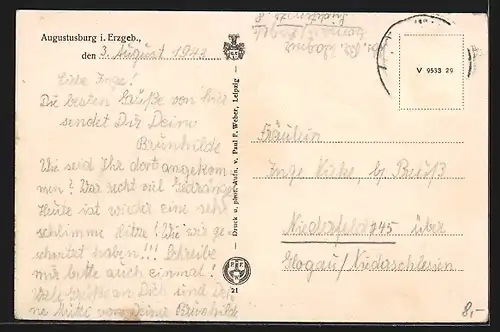 Augustusburg i. Erzgeb.,
den 3. August 1943
Liebe Inge!
Die besten Grüße von hier
sendet Dir Deine
Brunhilde
Wie seid Ihr dort angekom
men? War recht viel Gedränge
Heute ist wieder eine sehr
schlimme Hitze! Wie wir ge-
schwitzt haben!!! Schreibe
mir bitte auch einmal!
Viele Grüße an Dich und Dei-
ne Mutti von Deiner Brunhilde
Druck u. phot. Aufn. v. Paul F. Weber, Leipzig
21
V 9533 29
Fräulein
Inge bei
Niederfeld 745 über
Glogau/Niederschlesien
8,-